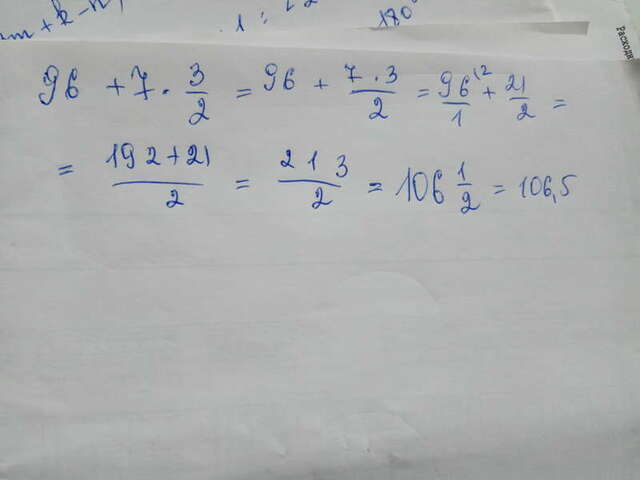 m + k - n,
1 :
180°
Расходи
96 + 7 · 3/2 = 96 + 7 · 3/2 = 96^(2/1 + 21/2 =
= 192 + 21/2 = 213/2 = 106 1/2 = 106,5